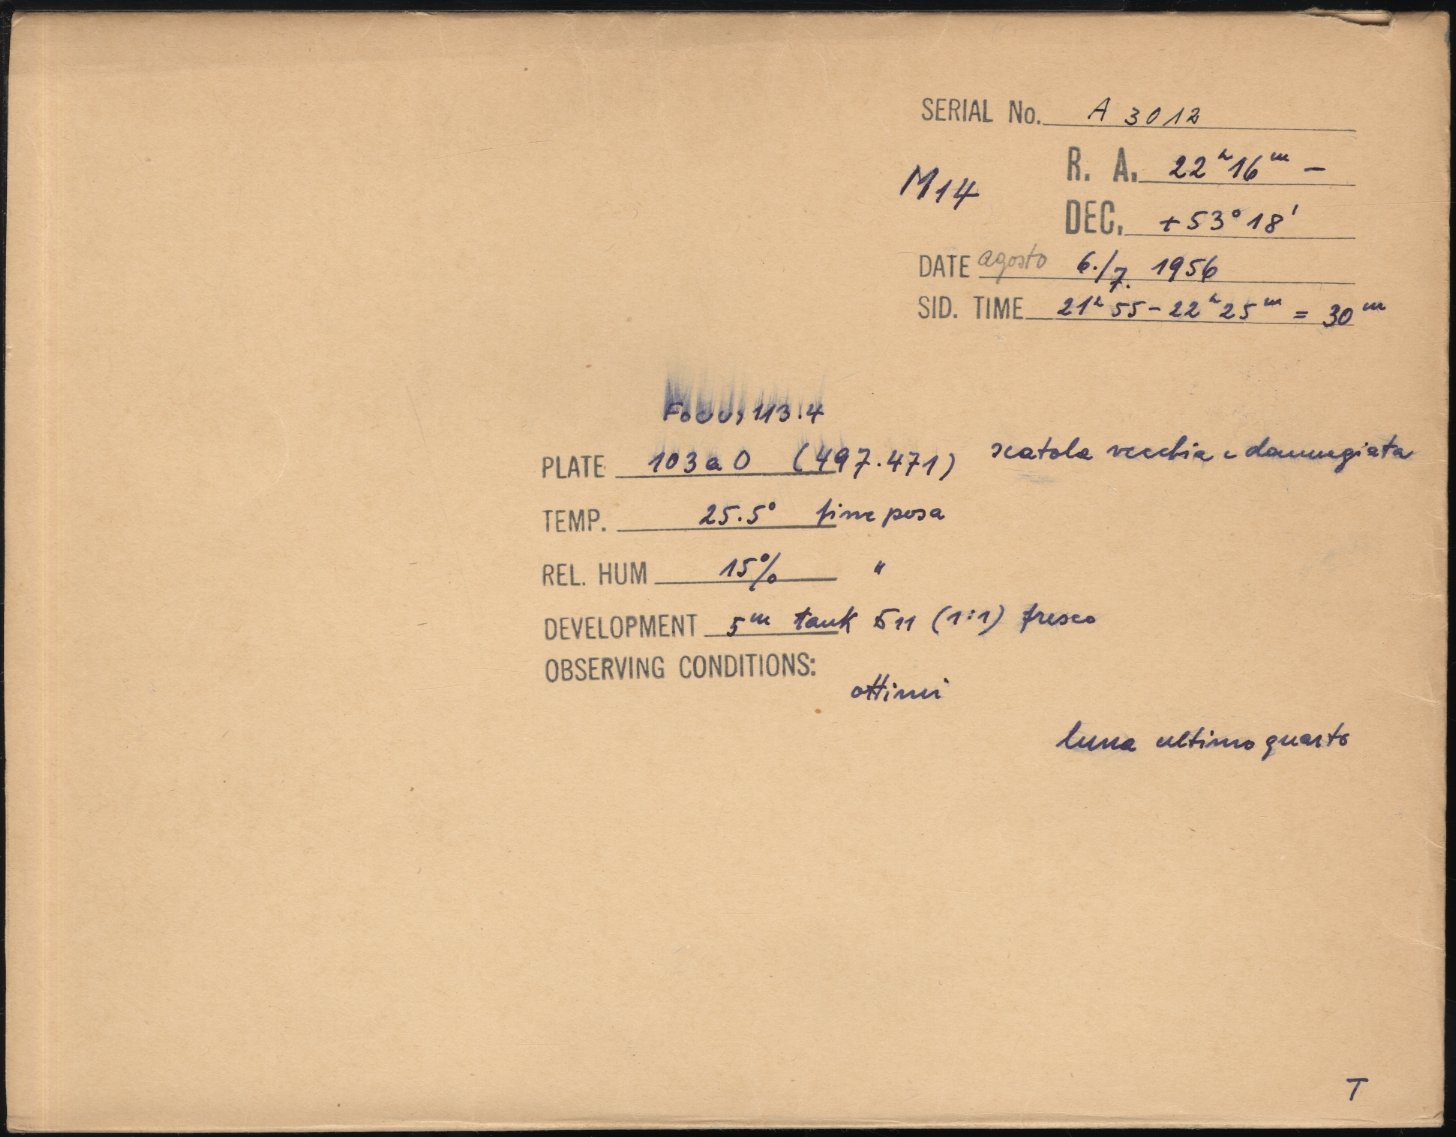 SERIAL No. A 3012
R. A. 22ʰ16ᵐ –
M14
DEC. +53° 18'
DATE agosto 6./7. 1956
SID. TIME 21ʰ55 – 22ʰ25ᵐ = 30ᵐ
Focus 113.4
PLATE 103a O (497.471) scatola vecchia e danneggiata
TEMP. 25.5° fine posa
REL. HUM 15% "
DEVELOPMENT 5ᵐ tank (1:1) fresco
OBSERVING CONDITIONS:
ottimi
luna ultimo quarto
T